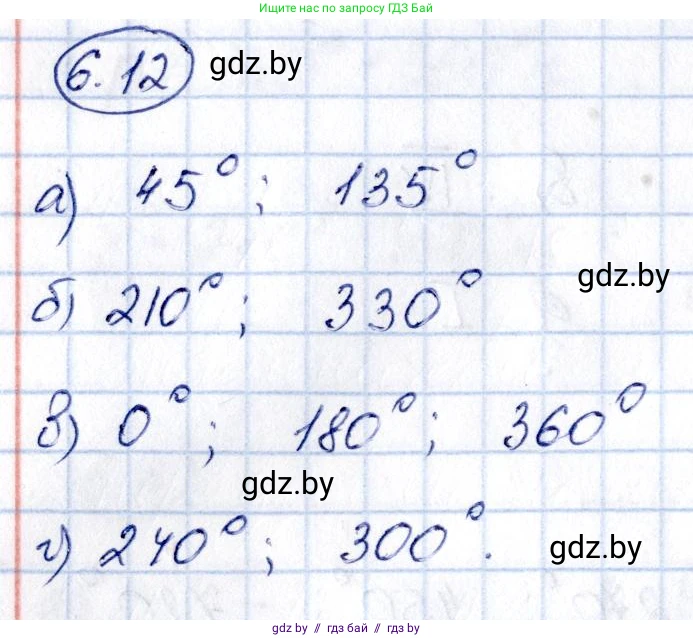 Ищите нас по запросу ГДЗ Бай
6.12 gdz.by
а) 45°; 135°
gdz.by
б) 210°; 330°
в) 0°; 180°; 360°
gdz.by
г) 240°; 300°.
gdz.by
gdz by // гдз бай // гдз by